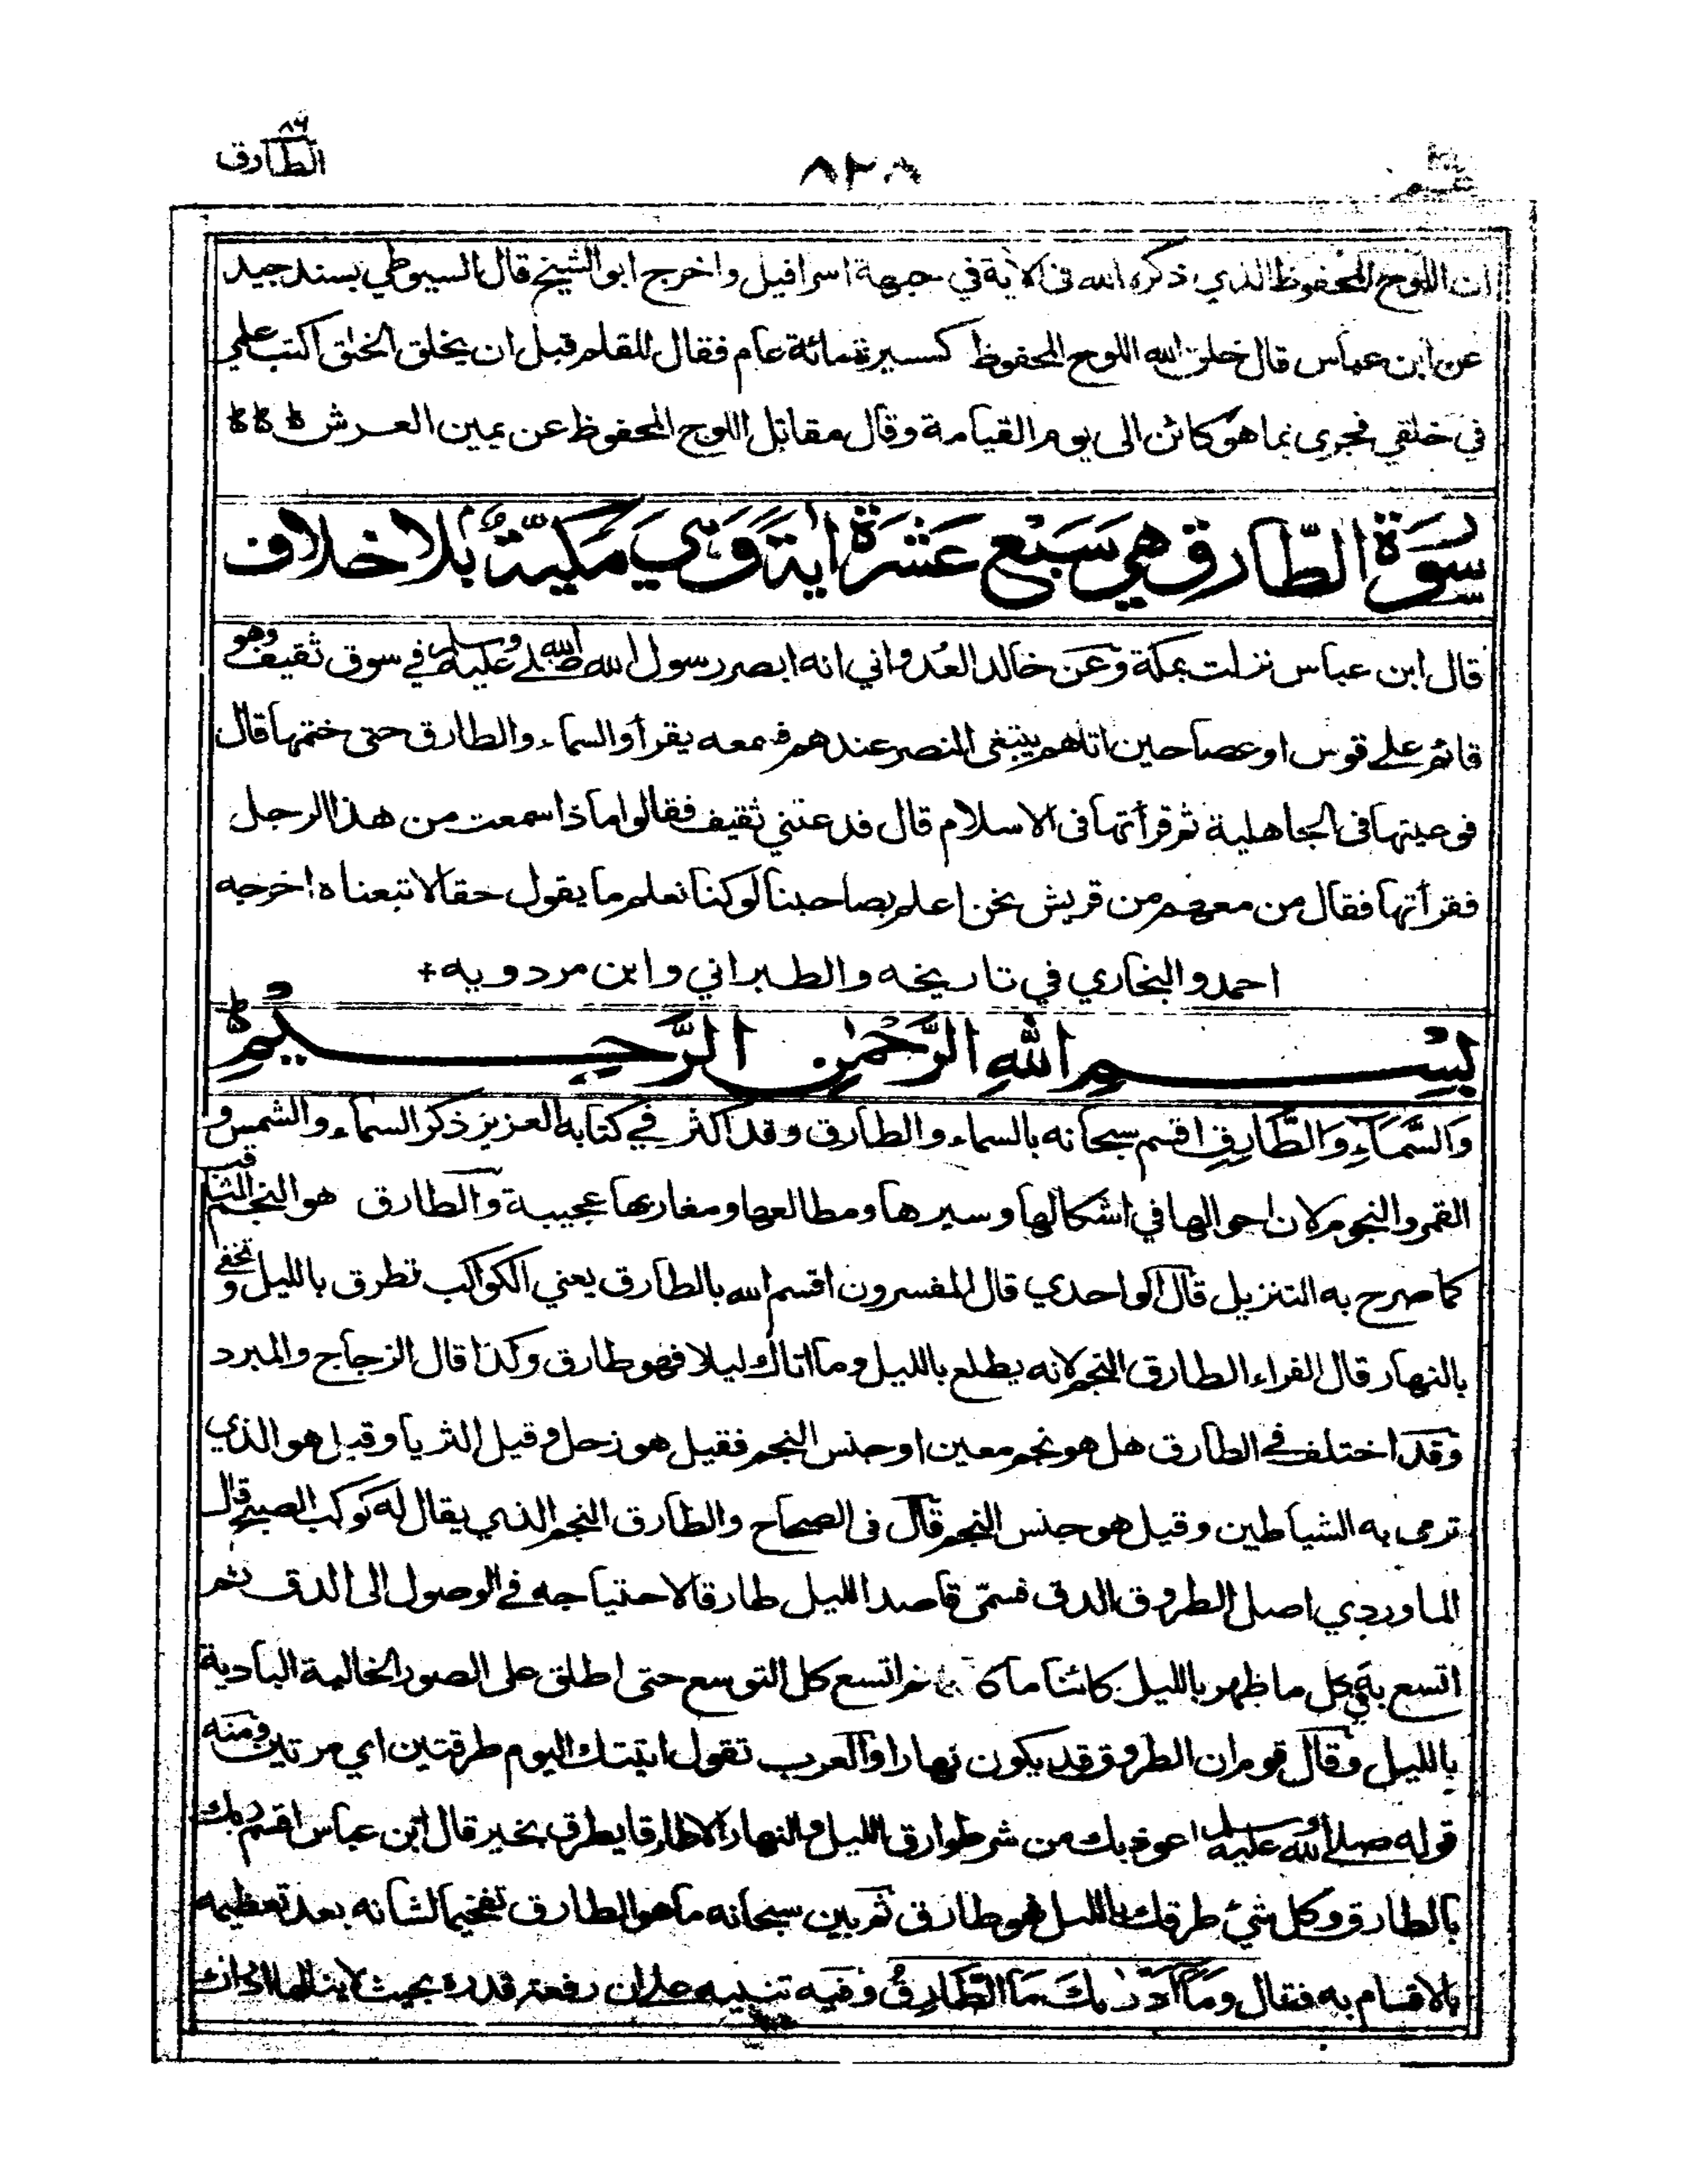 ٨٦
الطارق
٨٢٨
عم
ان اللوح المحفوظ الذي ذكره الله فى الاية في جبهة اسرافيل واخرج ابو الشيخ قال السيوطي بسند جيد
عن ابن عباس قال خلق الله اللوح المحفوظ كمسيرة مائة عام فقال للقلم قبل ان يخلق الخلق اكتب علمي
في خلقي فجرى بما هو كائن الى يوم القيامة وقال مقاتل اللوح المحفوظ عن يمين العرش
سُوْرَةُ الطَّارق هي سَبْع عَشْرَةَ ايَةً وَهي مَكيّةٌ بلا خلاف
قال ابن عباس نزلت بمكة وعن خالد العدواني انه ابصر رسول الله صلى الله عليه وسلم في سوق ثقيف وهو
قائم على قوس او عصا حين اتاهم يبتغى النصر عندهم فسمعه يقرأ والسماء والطارق حتى ختمها قال
فوعيتها فى الجاهلية ثم قرأتها فى الاسلام قال فدعتني ثقيف فقالوا ماذا سمعت من هذا الرجل
فقرأتها فقال من معهم من قريش نحن اعلم بصاحبنا لو كنا نعلم ما يقول حقا لاتبعناه اخرجه
احمد والبخاري في تاريخه والطبراني وابن مردويه +
بِسْمِ اللهِ الرَّحْمٰنِ الرَّحِيْمِ
وَالسَّمَآءِ وَالطَّارِقِ اقسم سبحانه بالسماء والطارق وقد اكثر في كتابه العزيز ذكر السماء والشمس و
القمر والنجوم لان احوالها في اشكالها وسيرها ومطالعها ومغاربها عجيبة والطارق هو النجم الثاقب
كما صرح به التنزيل قال الواحدي قال المفسرون اقسم الله بالطارق يعني الكواكب تطرق بالليل وتخفى
بالنهار قال الفراء الطارق النجم لانه يطلع بالليل وما اتاك ليلا فهو طارق وكذا قال الزجاج والمبرد
وقد اختلف في الطارق هل هو نجم معين او جنس النجم فقيل هو زحل وقيل الثريا وقيل هو الذي
ترمى به الشياطين وقيل هو جنس النجم قال فى الصحاح والطارق النجم الذي يقال له كوكب الصبح قال
الماوردي اصل الطروق الدق فسمّى قاصد الليل طارقا لاحتياجه في الوصول الى الدق ثم
اتسع به في كل ما ظهر بالليل كائنا ما كان ثم اتسع كل التوسع حتى اطلق على الصور الخالية البادية
بالليل وقال قوم ان الطروق قد يكون نهارا والعرب تقول اتيتك اليوم طرقتين اي مرتين ومنه
قوله صلى الله عليه وسلم اعوذ بك من شر طوارق الليل والنهار الا طارقا يطرق بخير قال ابن عباس اقسم ربك
بالطارق وكل شيئ طرقك بالليل فهو طارق ثم بين سبحانه ما هو الطارق تفخيما لشانه بعد تعظيمه
بالاقسام به فقال وَمَآ اَدْرٰىكَ مَا الطَّارِقُ وفيه تنبيه على ان رفعة قدره بحيث لا ينالها ادراك